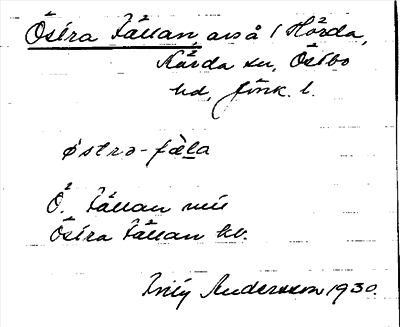 Östra Fållan, avs å i Hörda,
Kårda sn, Östbo
hd, Jönk. l.
östra-fåla
Ö. Fållan
Östra Fållan kv.
Andersson 1930.